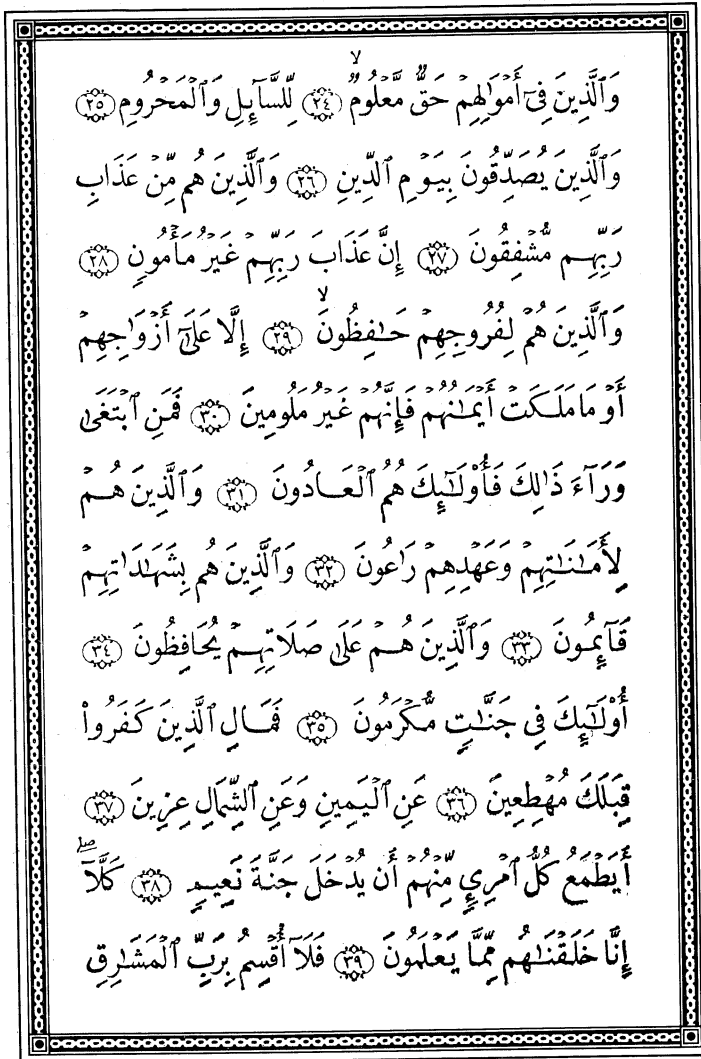 وَٱلَّذِينَ فِىٓ أَمْوَٰلِهِمْ حَقٌّ مَّعْلُومٌ ۙ ﴿٢٤﴾ لِّلسَّآئِلِ وَٱلْمَحْرُومِ ﴿٢٥﴾
وَٱلَّذِينَ يُصَدِّقُونَ بِيَوْمِ ٱلدِّينِ ﴿٢٦﴾ وَٱلَّذِينَ هُم مِّنْ عَذَابِ
رَبِّهِم مُّشْفِقُونَ ﴿٢٧﴾ إِنَّ عَذَابَ رَبِّهِمْ غَيْرُ مَأْمُونٍ ﴿٢٨﴾
وَٱلَّذِينَ هُمْ لِفُرُوجِهِمْ حَٰفِظُونَ ۙ ﴿٢٩﴾ إِلَّا عَلَىٰٓ أَزْوَٰجِهِمْ
أَوْ مَا مَلَكَتْ أَيْمَٰنُهُمْ فَإِنَّهُمْ غَيْرُ مَلُومِينَ ﴿٣٠﴾ فَمَنِ ٱبْتَغَىٰ
وَرَآءَ ذَٰلِكَ فَأُو۟لَٰٓئِكَ هُمُ ٱلْعَادُونَ ﴿٣١﴾ وَٱلَّذِينَ هُمْ
لِأَمَٰنَٰتِهِمْ وَعَهْدِهِمْ رَٰعُونَ ﴿٣٢﴾ وَٱلَّذِينَ هُم بِشَهَٰدَٰتِهِمْ
قَآئِمُونَ ﴿٣٣﴾ وَٱلَّذِينَ هُمْ عَلَىٰ صَلَاتِهِمْ يُحَافِظُونَ ﴿٣٤﴾
أُو۟لَٰٓئِكَ فِى جَنَّٰتٍ مُّكْرَمُونَ ﴿٣٥﴾ فَمَالِ ٱلَّذِينَ كَفَرُوا۟
قِبَلَكَ مُهْطِعِينَ ﴿٣٦﴾ عَنِ ٱلْيَمِينِ وَعَنِ ٱلشِّمَالِ عِزِينَ ﴿٣٧﴾
أَيَطْمَعُ كُلُّ ٱمْرِئٍ مِّنْهُمْ أَن يُدْخَلَ جَنَّةَ نَعِيمٍ ﴿٣٨﴾ كَلَّآ ۖ
إِنَّا خَلَقْنَٰهُم مِّمَّا يَعْلَمُونَ ﴿٣٩﴾ فَلَآ أُقْسِمُ بِرَبِّ ٱلْمَشَٰرِقِ